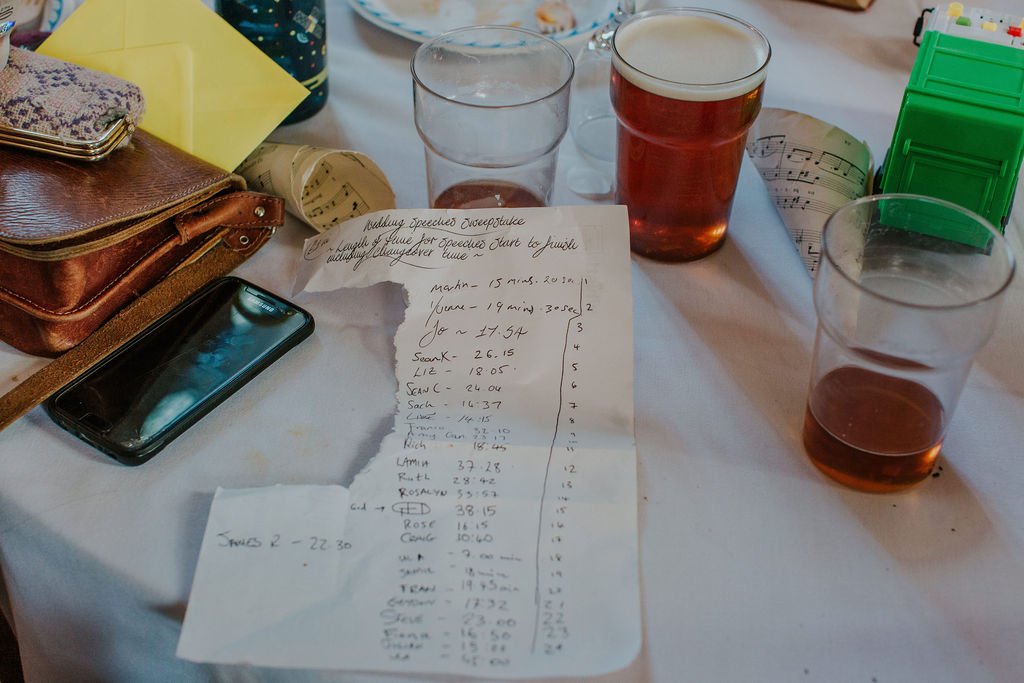 Wedding Speeches Sweepstake
~ Length of time for Speeches Start to finish
including Changeover time ~
Martin - 15 mins. 20 1
Yvonne - 19 mins. 30 sec 2
Jo ~ 17.54 3
Sean K - 26.15 4
LIZ - 18.05 5
SEAN C - 24.04 6
Sach - 16:37 7
14:15 8
32.10
23 17
Rich 18.45 11
LAMIA 37.28 12
Ruth 28:42 13
ROSALYN 33:57 14
Gid → 38.15 15
ROSE 16:15 16
CRAIG 30:40 17
JAMES R - 22.30
- 7.00 min 18
- 8min 19
FRAN - 19:45 min
- 17:32 21
STEVE - 23.00 22
Fiona - 16:50 23
24
- 45:00
SAMSUNG